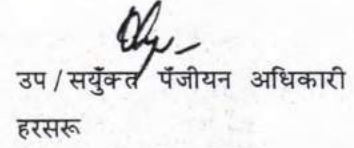 उप/सयुँक्त पँजीयन अधिकारी
हरसरू